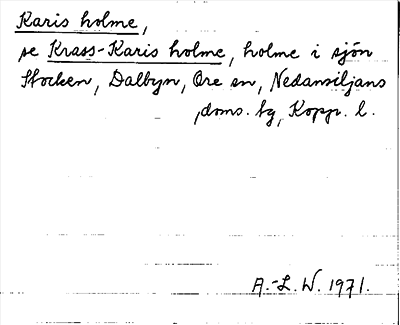 Karis holme,
se Krass-Karis holme, holme i sjön
Stocken, Dalbyn, Ore sn, Nedansiljans
doms. tg, Kopp. l.
A.-L. W. 1971.